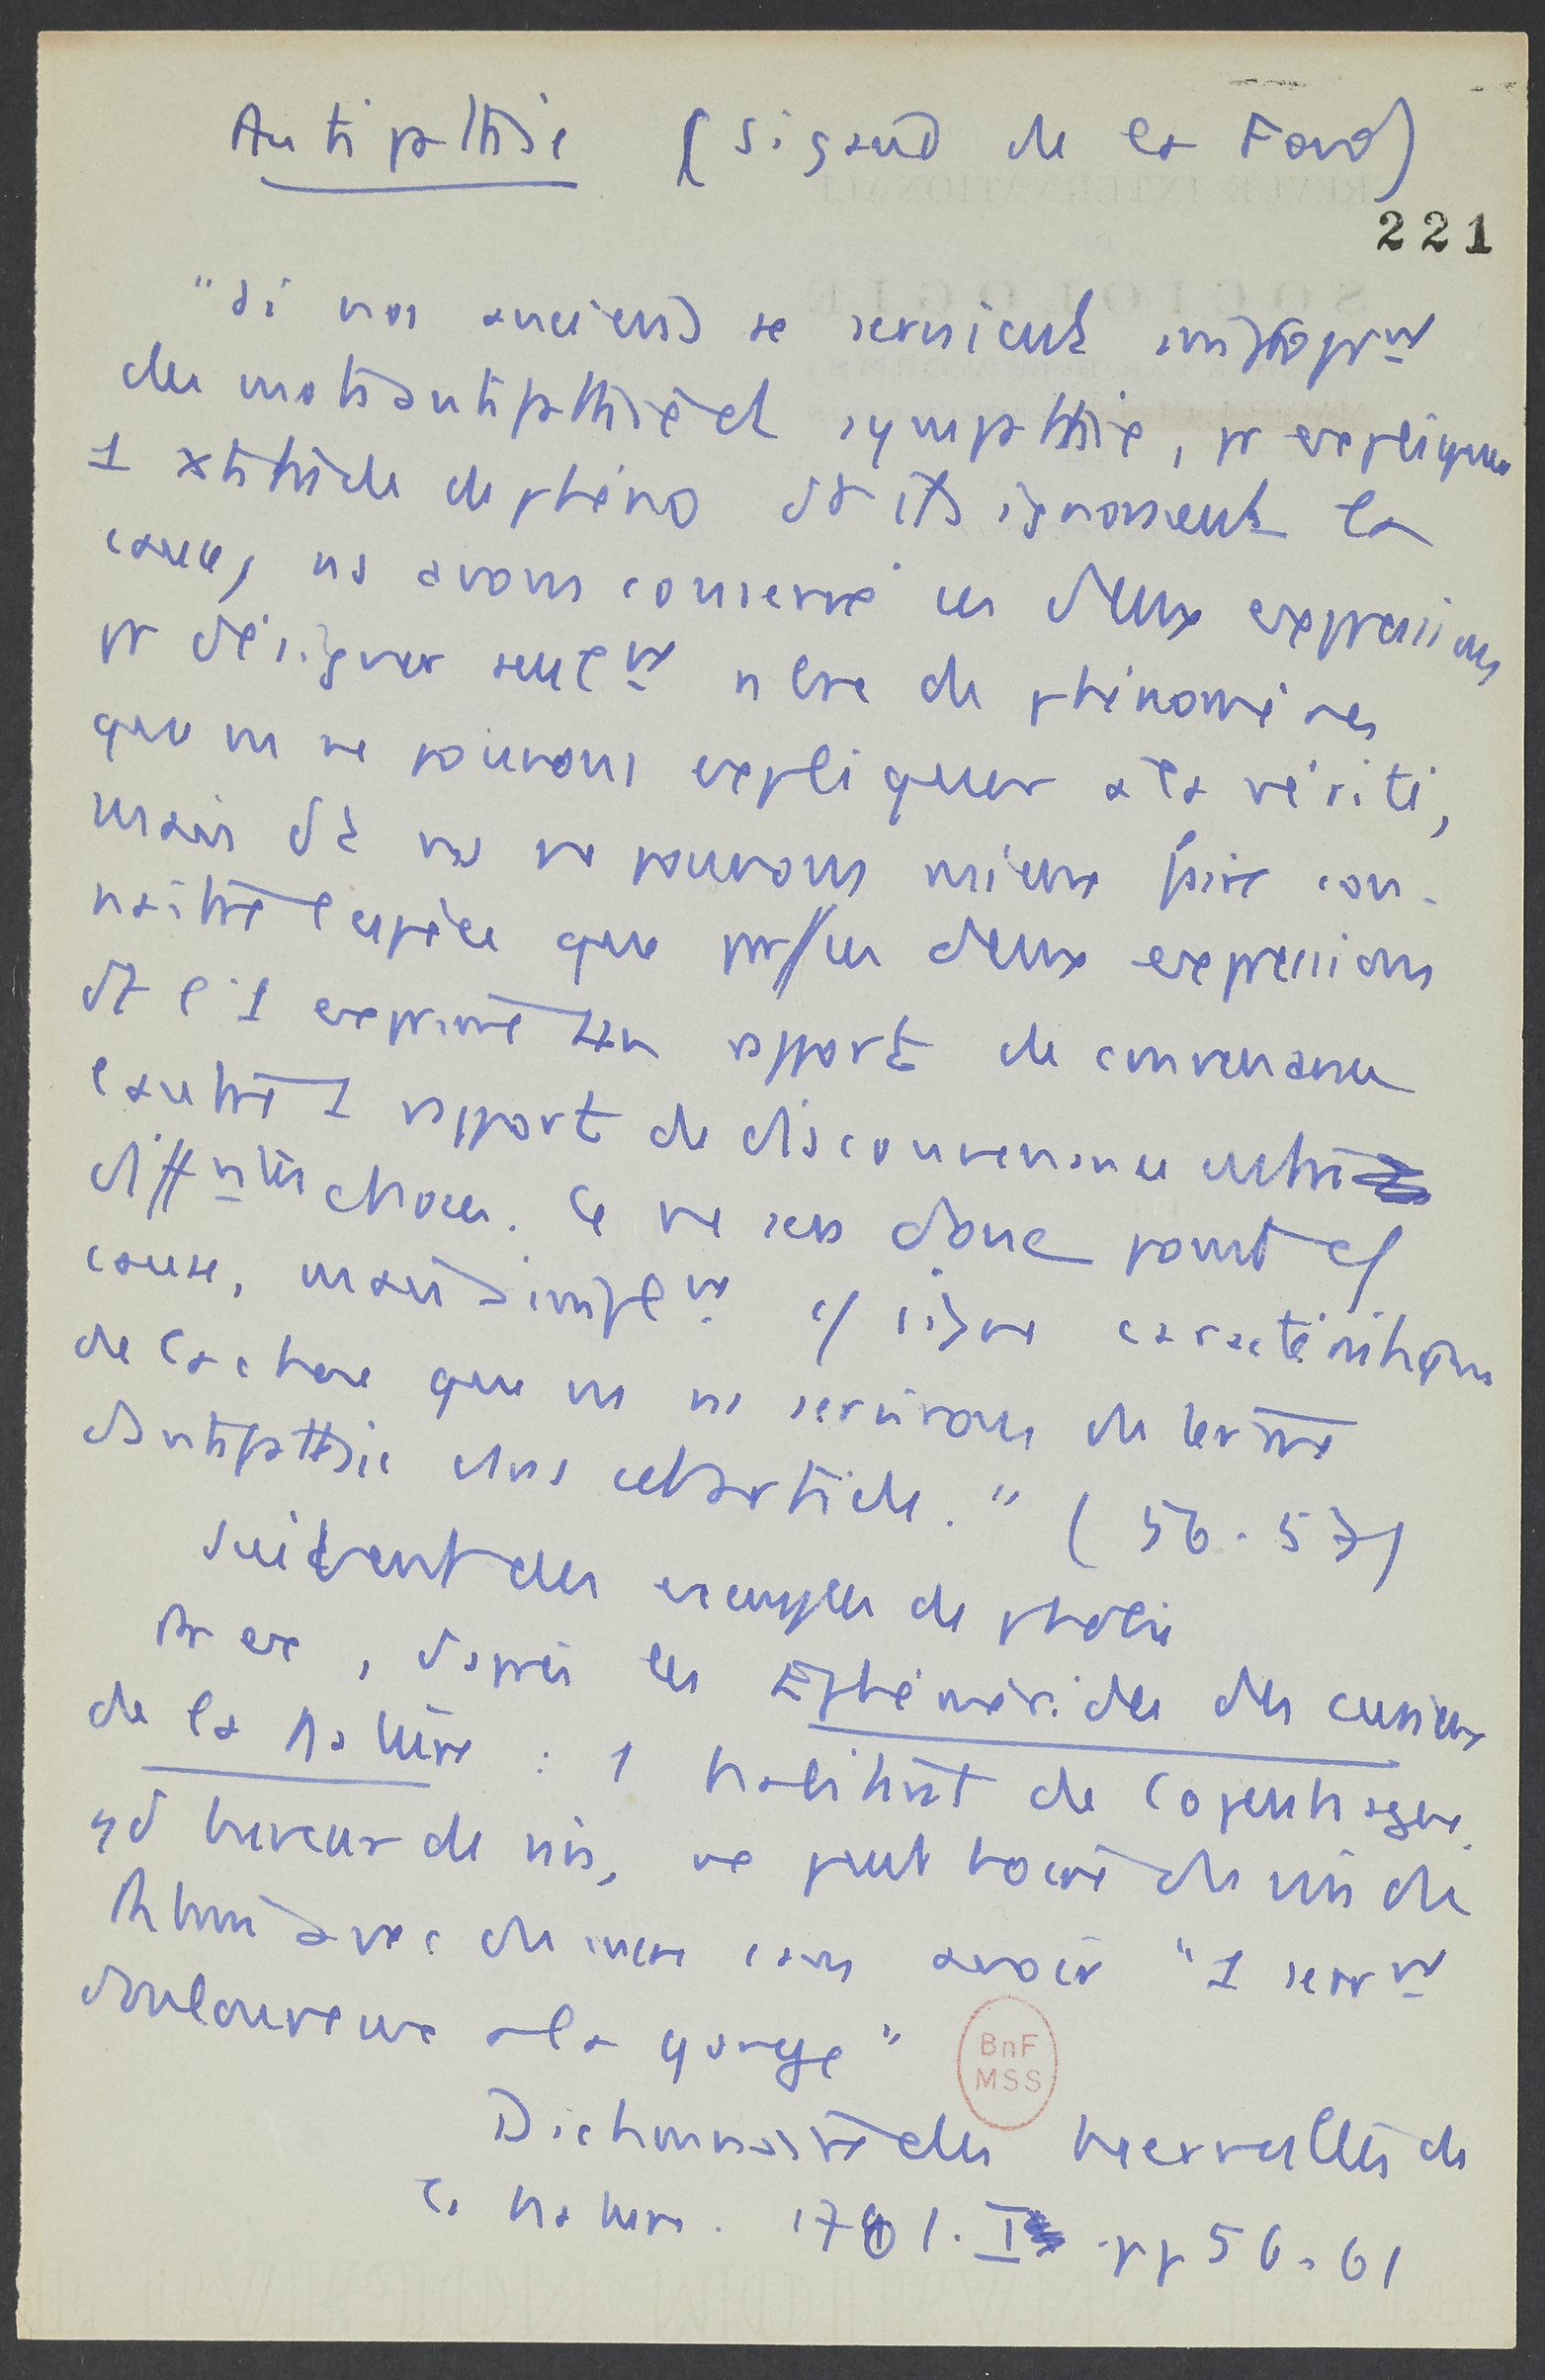 Antipathie (Sigaud de la Fond)
221
"Si nos anciens se servirent improprt
des mots antipathie et sympathie, pr expliquer
1 xtitude de phéno dt ils ignoraient la
cause, ns avons conservé ces deux expressions
pr désigner seult n bre de phénomènes
que ns ne pouvons expliquer à la vérité,
mais dt ns ne pouvons mieux faire con-
naître l'espèce que par ces deux expressions
dt l'1 exprime un rapport de convenance
l'autre 1 rapport de disconvenance entre
difftes choses. Ce ne sera donc point c/
cause, mais simplt c/ signe caractéristique
de la chose que ns ns servirons du terme
d'antipathie dans cet article." (56-57)
Suivent des exemples de phobie
Par ex, d'après les Ephémérides des curieux
de la Nature : 1 habitant de Copenhague.
gd buveur de vin, ne peut boire du vin du
Rhin avec du sucre sans avoir "1 serrt
douloureux à la gorge"
BnF
MSS
Dictionnaire des merveilles de
la Nature. 1781. I pp 56-61